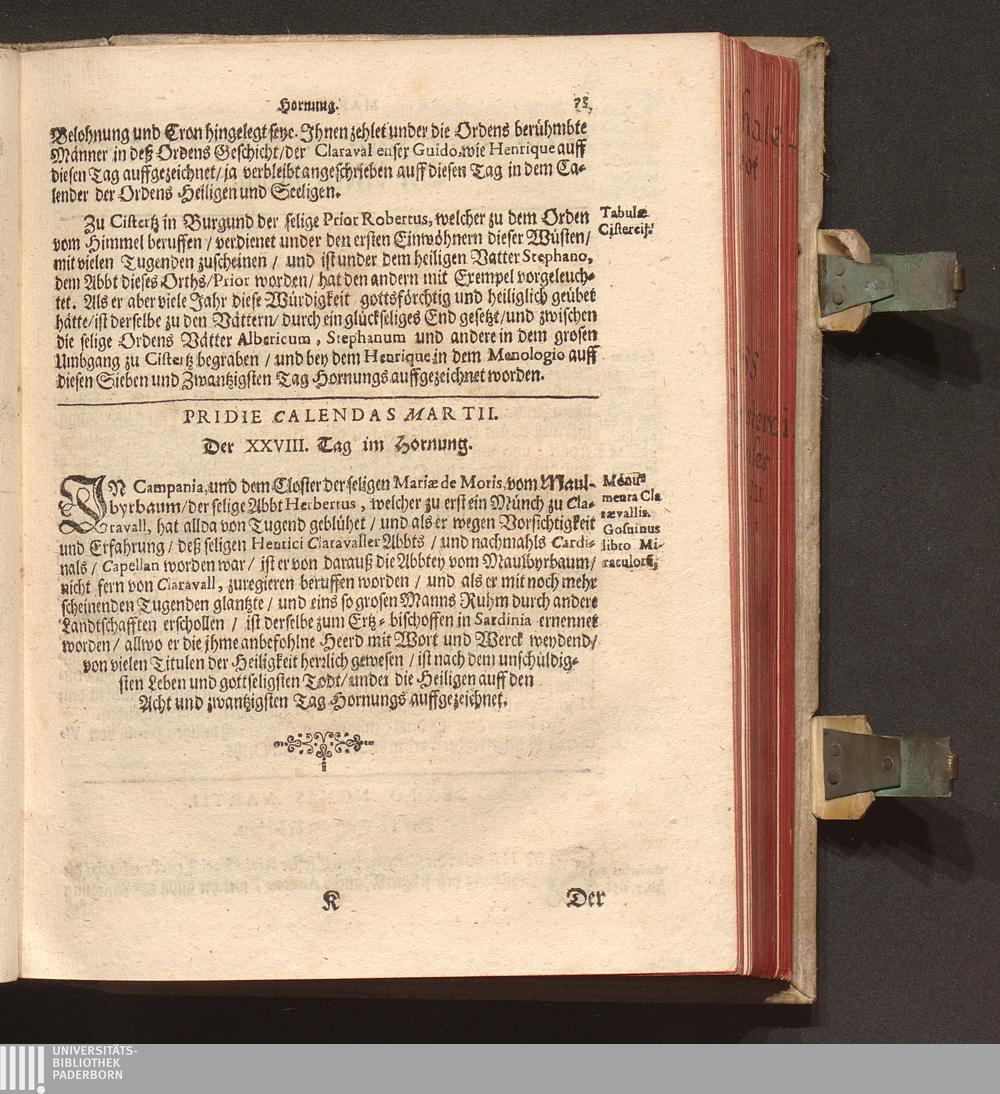 Hornung. 73
Belohnung und Cron hingelegt seye. Ihnen zehlet under die Ordens berühmbte
Männer in deß Ordens Geschicht/ der Claravalenser Guido, wie Henrique auff
diesen Tag auffgezeichnet/ ja verbleibt angeschrieben auff diesen Tag in dem Ca-
lender der Ordens Heiligen und Seeligen.
Zu Cistertz in Burgund der selige Prior Robertus, welcher zu dem Orden
vom Himmel beruffen / verdienet under den ersten Einwöhnern dieser Wüsten/
mit vielen Tugenden zuscheinen / und ist under dem heiligen Vatter Stephano,
dem Abbt dieses Orths/ Prior worden/ hat den andern mit Exempel vorgeleuch-
tet. Als er aber viele Jahr diese Würdigkeit gottsförchtig und heiliglich geübet
hätte/ ist derselbe zu den Vättern/ durch ein glückseliges End gesetzt/ und zwischen
die selige Ordens Vätter Albericum, Stephanum und andere in dem grosen
Umbgang zu Cistertz begraben / und bey dem Henrique in dem Menologio auff
diesen Sieben und Zwantzigsten Tag Hornungs auffgezeichnet worden.
Tabulæ
Cistercij.
PRIDIE CALENDAS MARTII.
Der XXVIII. Tag im Hornung.
IN Campania, und dem Closter der seligen Mariæ de Moris, vom Maul-
byrbaum/ der selige Abbt Herbertus, welcher zu erst ein Münch zu Cla-
ravall, hat allda von Tugend geblühet / und als er wegen Vorsichtigkeit
und Erfahrung / deß seligen Henrici Claravaller Abbts / und nachmahls Cardi-
nals / Capellan worden war / ist er von darauß die Abbtey vom Maulbyrbaum/
nicht fern von Claravall, zuregieren beruffen worden / und als er mit noch mehr
scheinenden Tugenden glantzte / und eins so grosen Manns Ruhm durch andere
Landtschafften erschollen / ist derselbe zum Ertz-bischoffen in Sardinia ernennet
worden / allwo er die jhme anbefohlne Heerd mit Wort und Werck weydend/
von vielen Titulen der Heiligkeit herrlich gewesen / ist nach dem unschüldig-
sten Leben und gottseligsten Todt/ under die Heiligen auff den
Acht und zwantzigsten Tag Hornungs auffgezeichnet.
Monu-
menta Cla
rævallis.
Gosuinus
libro Mi-
raculorū,
K Der
UNIVERSITÄTS-
BIBLIOTHEK
PADERBORN